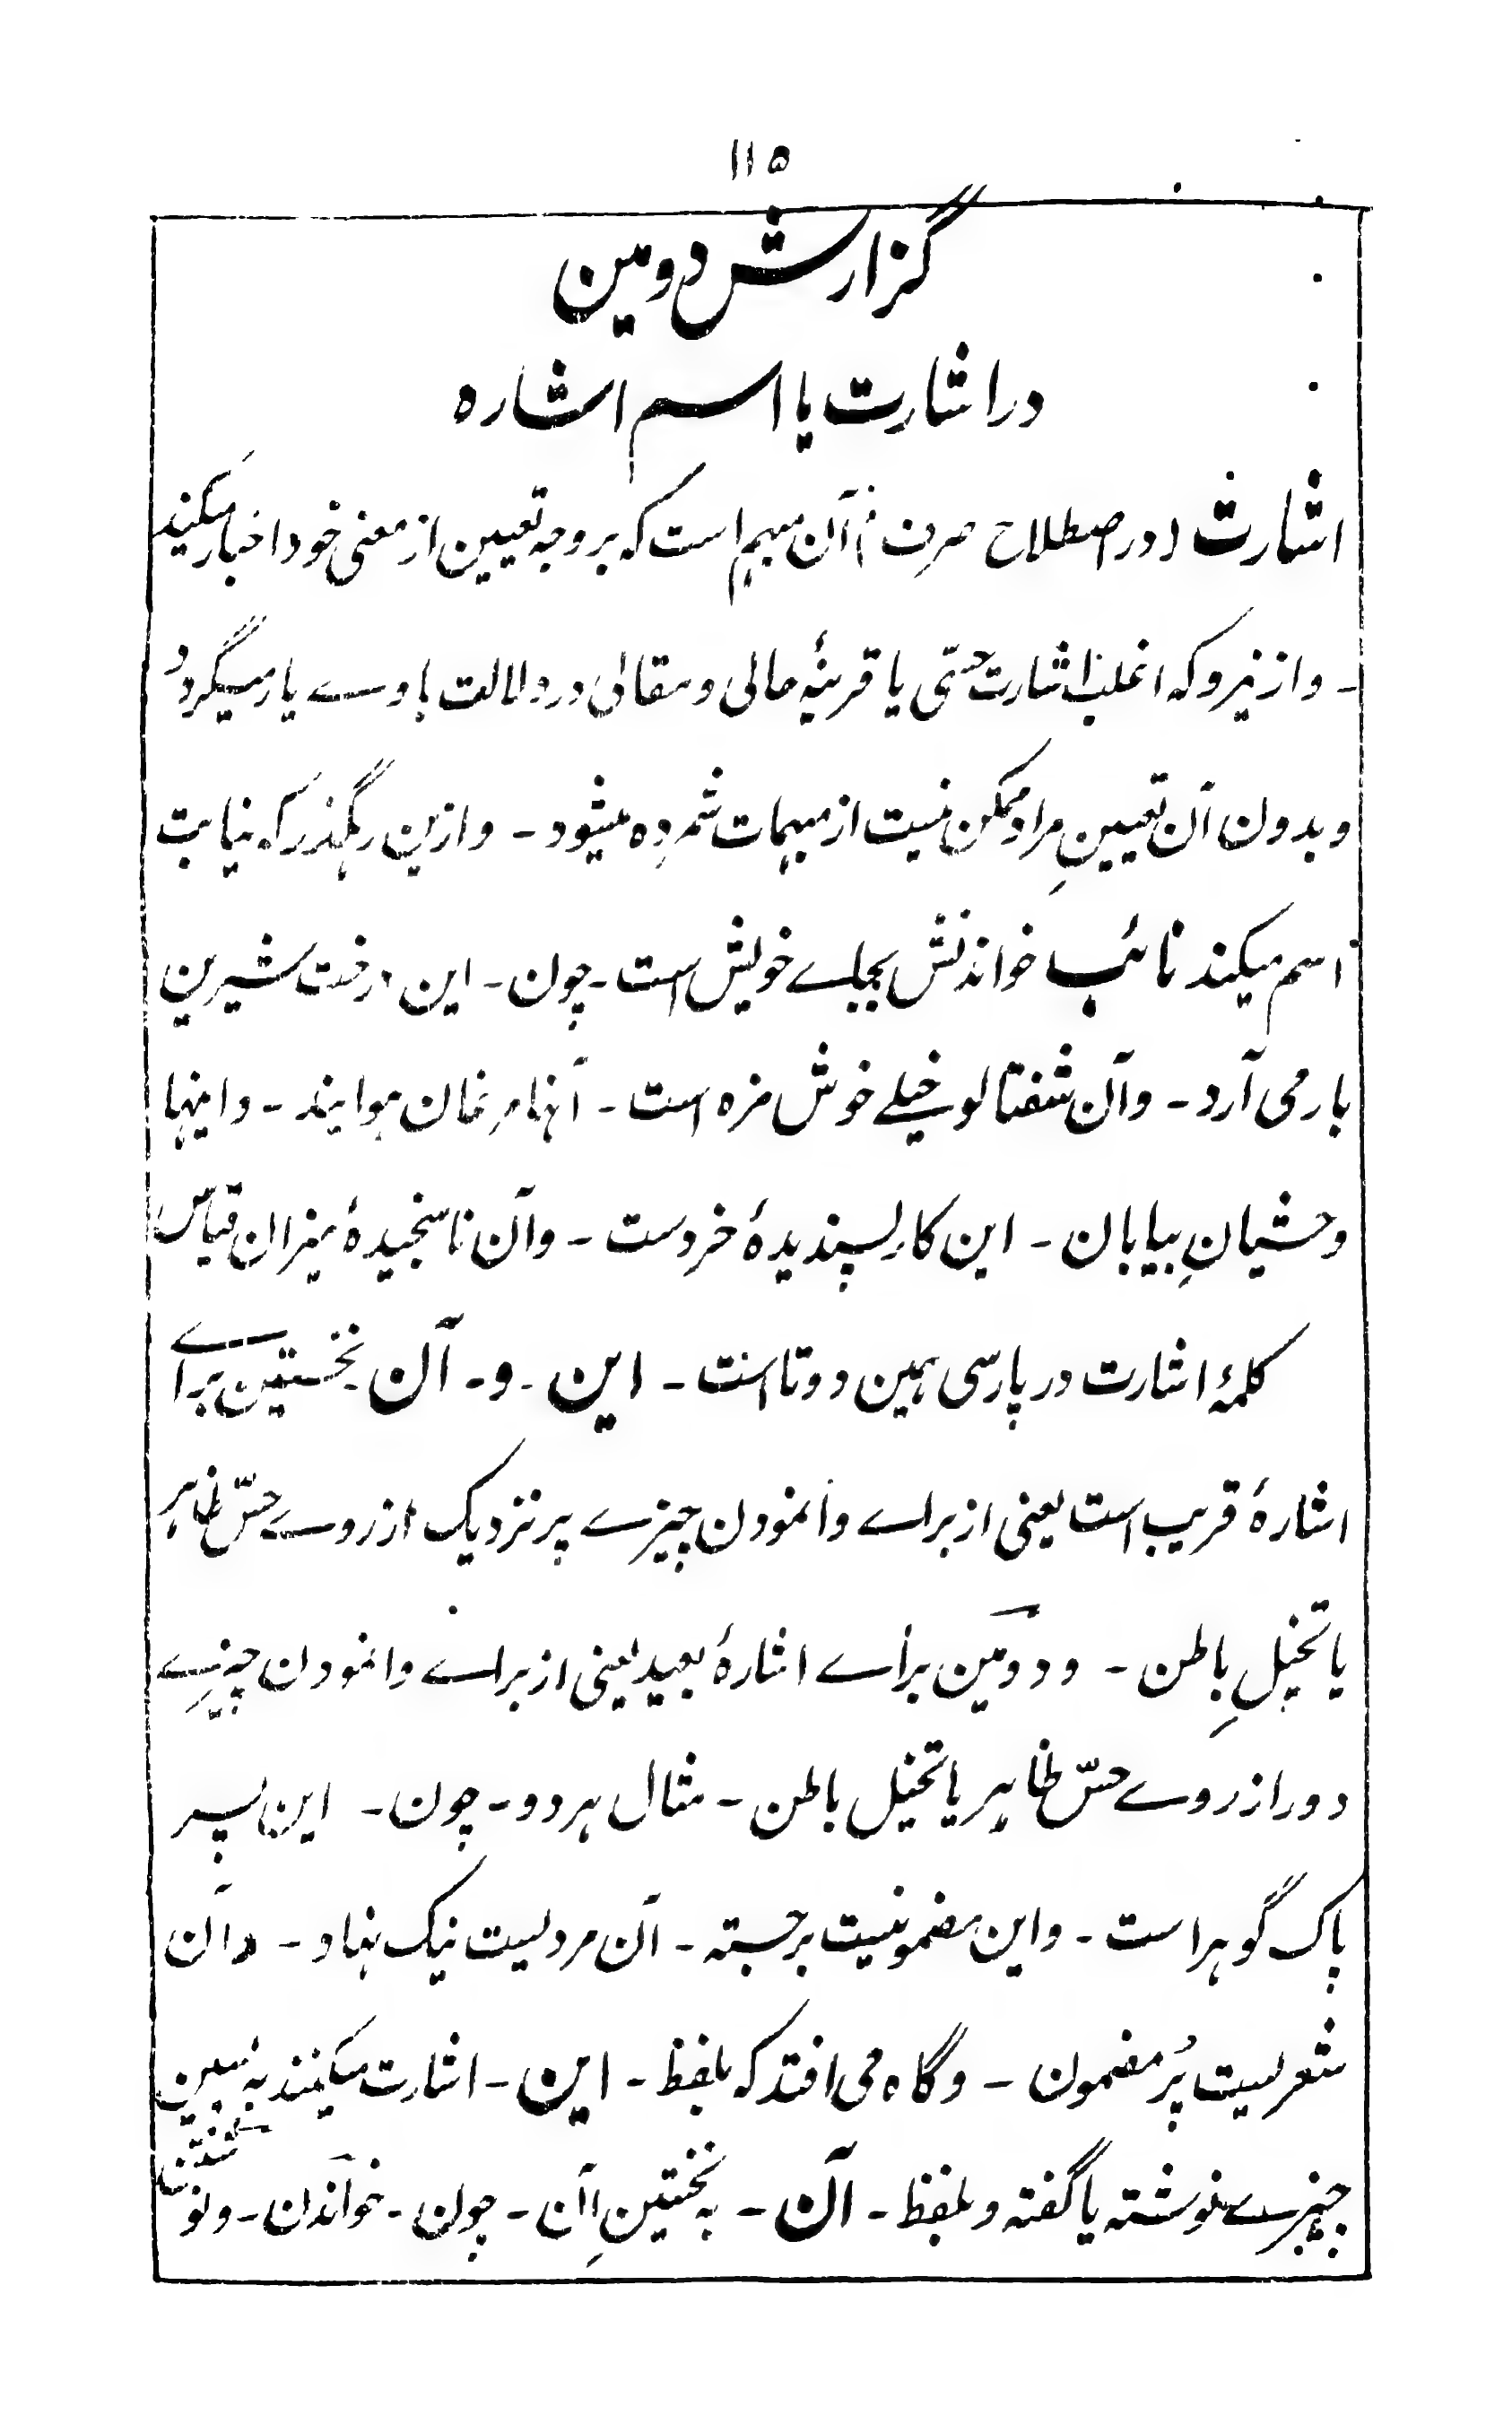 ۱۱۵
گزارش دومین
در اشارت یا اسم اشاره
اشارت (در اصطلاح صرف) آن مبهم است که بر وجه تعیین از معنی خود اخبار میکند
- و ازنیرو که اغلب اشارت حسّی یا قرینۀ حالی و مقالی در دلالت باوے یار میگردد
و بدون آن تعیینِ مراد ممکن نیست از مبهمات شمرده میشود - و ازین رهگذر که نیابت
اسم میکند نائب خواندنش بجاے خویش است - چون - این درخت شیرین
بار می آرد - و آن شفتالو خیلے خوش مزه است - آنها مرغان هوایند - و اینها
وحشیانِ بیابان - این کار پسندیدۀ خردست - و آن ناسنجیدۀ میزان قیاس
کلمۀ اشارت در پارسی همین دو تا است - این - و - آن نخستین براے
اشارۀ قریب است یعنی از براے وانمودن چیزے پر نزدیک از روے حسّ ظاهر
یا تخیلِ باطن - و دومین براے اشارۀ بعید یعنی از براے وانمودن چیزے
دور از روے حسّ ظاهر یا تخیل باطن - مثال هر دو - چون - این پسر
پاک گوهر است - و این مضمونیست برجسته - آن مردیست نیک نهاد - و آن
شعریست پُر مضمون - و گاه می افتد که بلفظ - این - اشارت میکنند به پسین
چیزے نوشته یا گفته و بلفظ - آن - به نخستینِ آن - چون - خواندن - و نوشتن